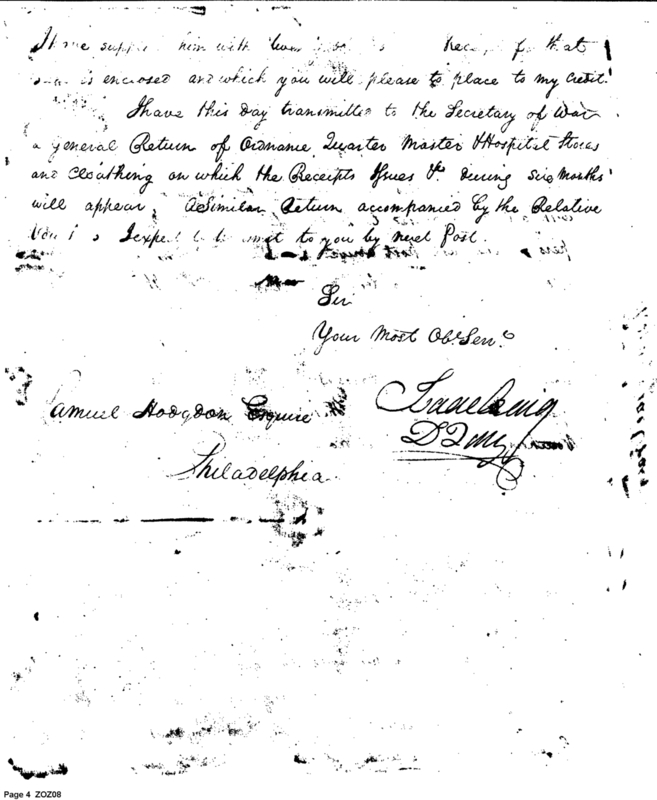 I have supp him with for that
is enclosed and which you will please to place to my Credit.
I have this Day transmitted to the Secretary of War
a general Return of Ordnance Quarter Master & Hospital Stores
and Cloathing on which the Receipts Issues &c during six Months
will appear, a Similar Return accompanied by the Relative
I expect to to you by next Post.
Sir
Your Most Obt. Servt.
Samuel Hodgdon Esquire
Isaac Craig
D Q M
Philadelphia
Page 4 ZOZ08